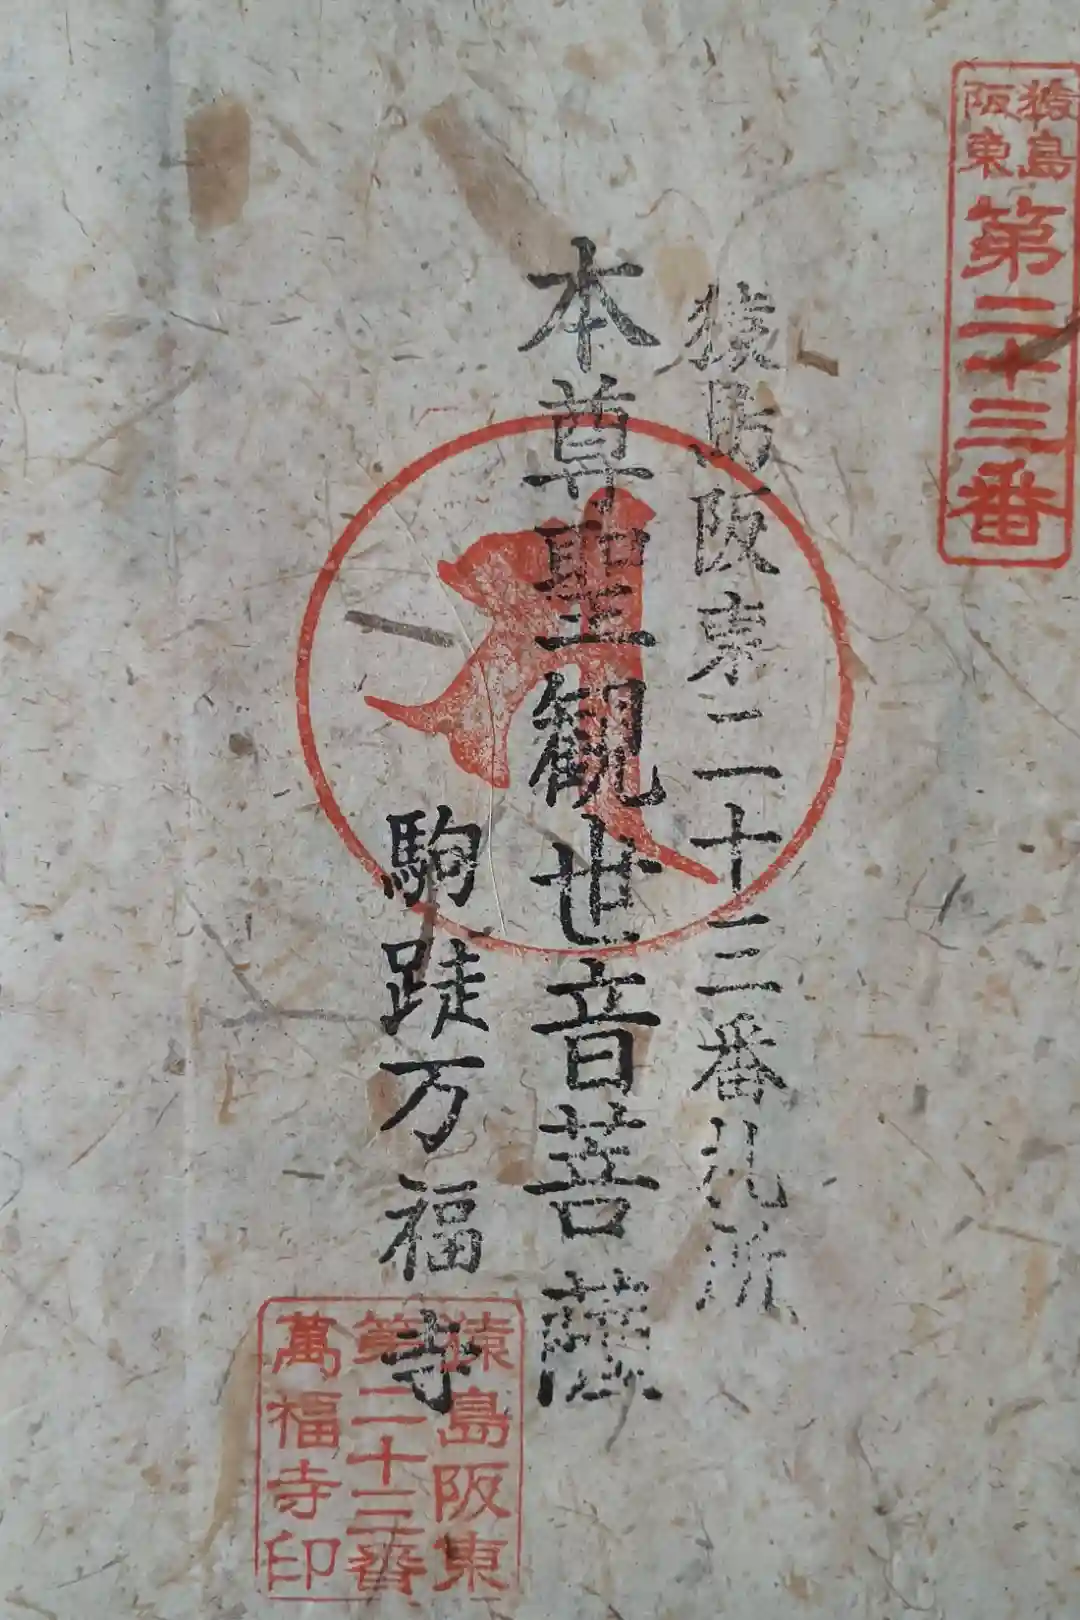 猿島
阪東
第二十三番
猿島阪東二十三番札所
本尊聖観世音菩薩
駒跿万福寺
猿島阪東
第二十三番
萬福寺印